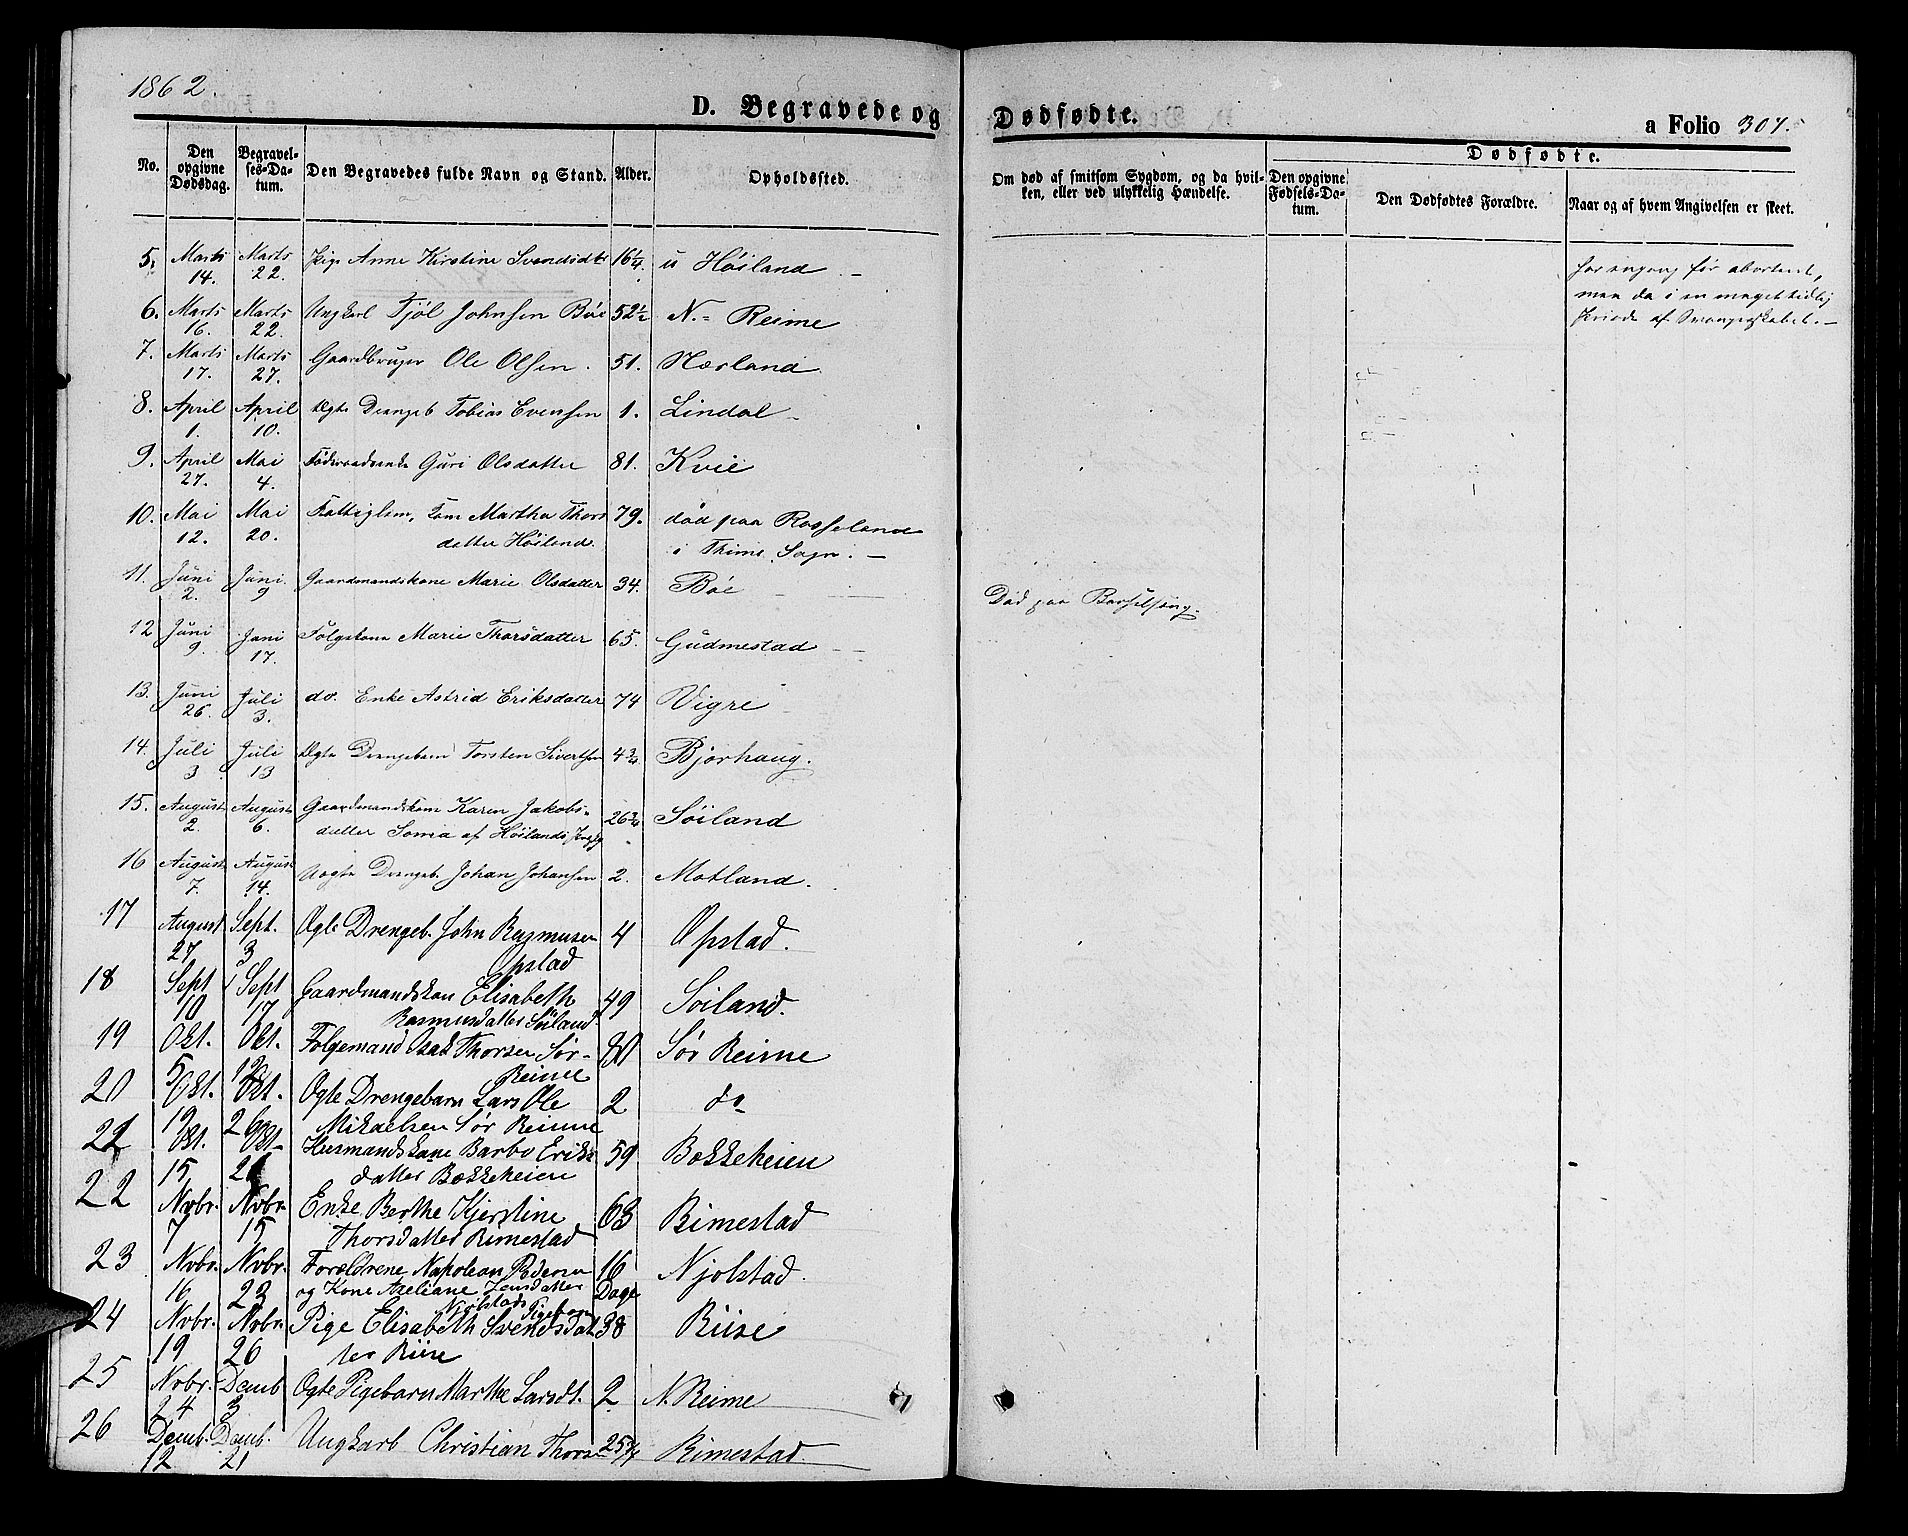 1862.
D. Begravede og Dødfødte.
a Folio 307.
No.
Den opgivne Dødsdag.
Begravelses-Datum.
Den Begravedes fulde Navn og Stand.
Alder.
Opholdssted.
Om død af smitsom Sygdom, og da hvilken, eller ved ulykkelig Hændelse.
Dødfødte.
Den opgivne Fødsels-Datum.
Den Dødfødtes Forældre.
Naar og af hvem Angivelsen er skeet.
5. Marts 14. Marts 22. Pige Anne Kirstine Svendsdtr 16 1/4. Høiland
har engang før abortert,
men da i en meget tidlig
Periode af Svangerskabet.
6. Marts 16. Marts 22. Ungkarl Fjøl Johnsen Bøe 52 1/2 N. Reime
7. Marts 17. Marts 27. Gaardbruger Ole Olsen. 51. Nærland
8. April 1. April 10. Ægte Drengeb Tobias Evensen 1. Lindal
9. April 27. Mai 4. Føderaadsenke Guri Olsdatter 81. Kvie
10. Mai 12. Mai 20. Fattiglem, Martha Thors 79. død paa Rosseland
datter Høiland. i Thime Sogn.
11. Juni 2. Juni 9 Gaardmandskone Marie Olsdatter 34. Bøe
Død paa Barselseng.
12 Juni 9. Juni 17. Folgekone Marie Thorsdatter 65. Gudmestad
13. Juni 26. Juli 3. do. Enke Astrid Eriksdatter 74 Vigre
14. Juli 3 Juli 13 Ægte Drengebarn Torsten Sivertsen 4 3/4 Bjorhaug.
15. August 2. August 6. Gaardmandskone Karen Jakobs-
datter Soma af Høilands Prgjld 26 3/4 Søiland
16 August 7. August 14. Uægte Drengeb. Johan Johansen 2. Motland.
17 August 27 Sept. 3 Ægte Drengeb. John Rasmusen 4 Opstad.
Opstad
18 Sept 10 Sept 17 Gaardmandskone Elisabeth 49 Søiland.
Rasmusdatter Søiland
19 Okt. 5 Okt. 12 Folgemand Isak Thorsen Sør- 80 Sør Reime
Reime
20 Okt. 19 Okt. 26 Ægte Drengebarn Lars Ole 2 do
Mikaelsen Sør Reime
21 Okt. 15 Okt. Husmandskone Barbo Eriks 59 Bokkeheien
datter Bokkeheien
22 Nvbr. 7 Nvbr. 15 Enke Berthe Kjerstine 63 Rimestad
Thorsdatter Rimestad
23 Nvbr. 16 Nvbr. 23 Forældrene Napoleon Pedersen 16 Dage Njølstad.
og Kone Axeliane Jensdatter
Njølstads Pigebarn
24 Nvbr. 19 Nvbr. 26 Pige Elisabeth Svendsdat 38 Riise
ter Riise
25 Nvbr. 24 Demb 3 Ægte Pigebarn Marthe Larsdt. 2 N. Reime
26 Demb. 12 Demb. 21 Ungkarl Christian Thorsen 25 Rimestad.